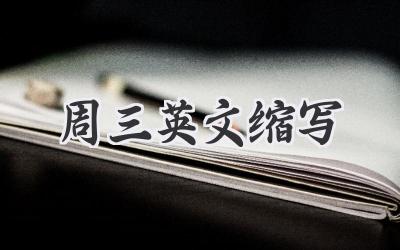 周三英文缩写